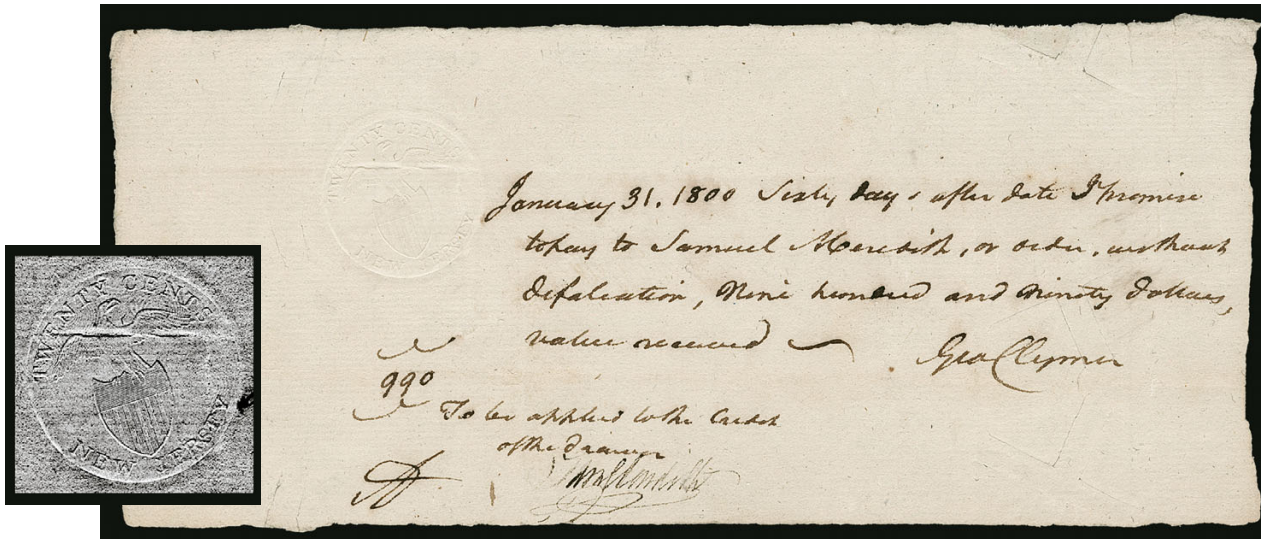 TWENTY CENTS
NEW JERSEY
January 31. 1800 Sixty days after date I promise
to pay to Samuel Meredith, or order, without
defalcation, Nine hundred and ninety dollars,
value received
Geo Clymer
990
To be applied to the Credit
of the drawer
Sam Meredith
TWENTY CENTS
NEW JERSEY